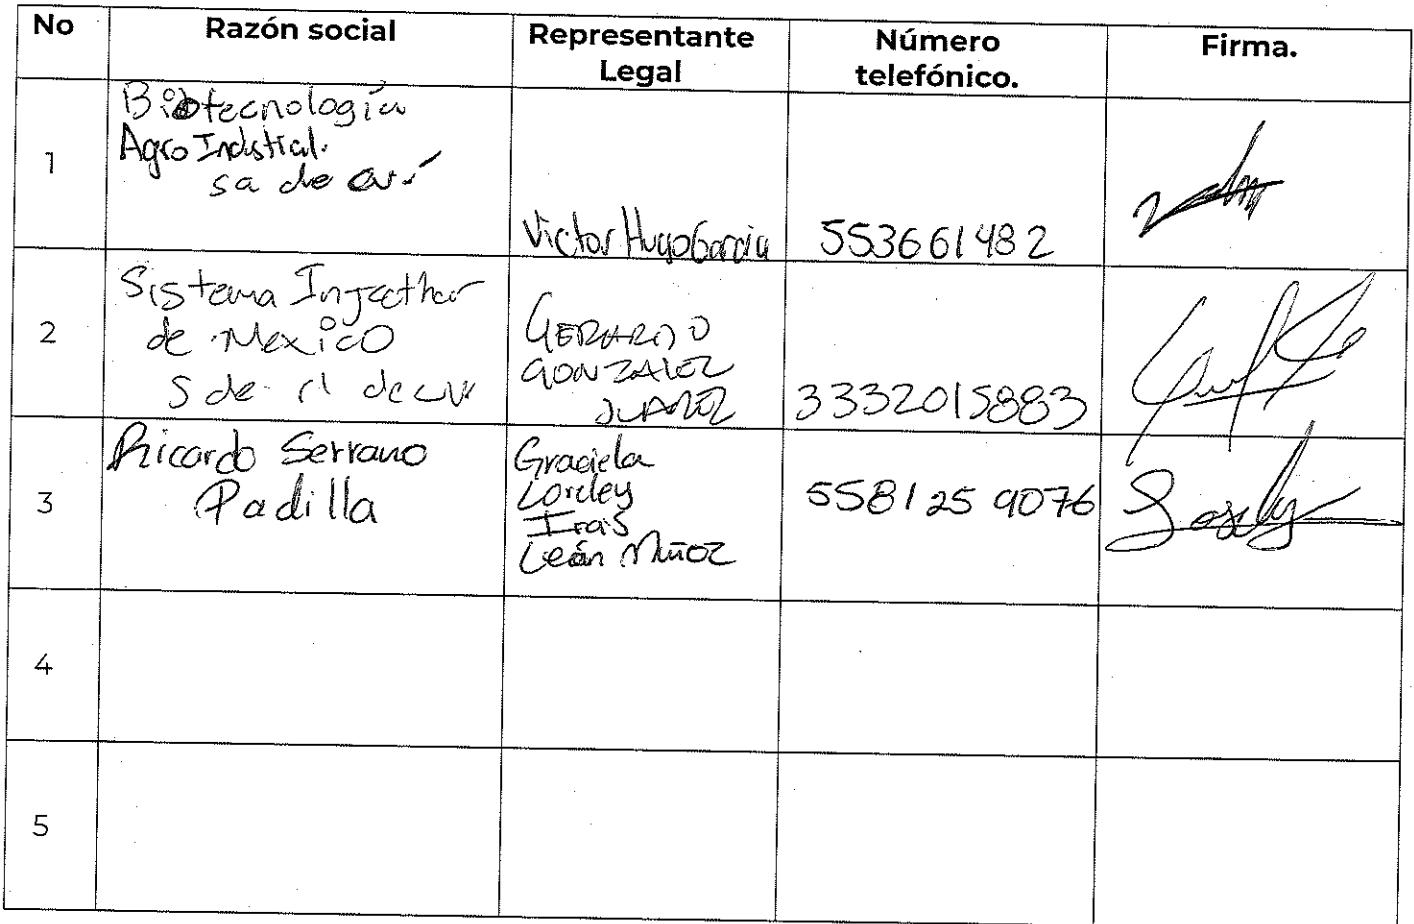 No Razón social Representante Legal Número telefónico. Firma.
1
Biotecnología
Agro Industrial.
sa de cv.
Victor Hugo Garcia
553661482
2
Sistema
de Mexico
S de rl de cv
GERARDO
GONZALEZ
JUAREZ
3332015883
3
Ricardo Serrano
Padilla
Graciela
Lorcley
Irais
León Muñoz
5581259076
4
5